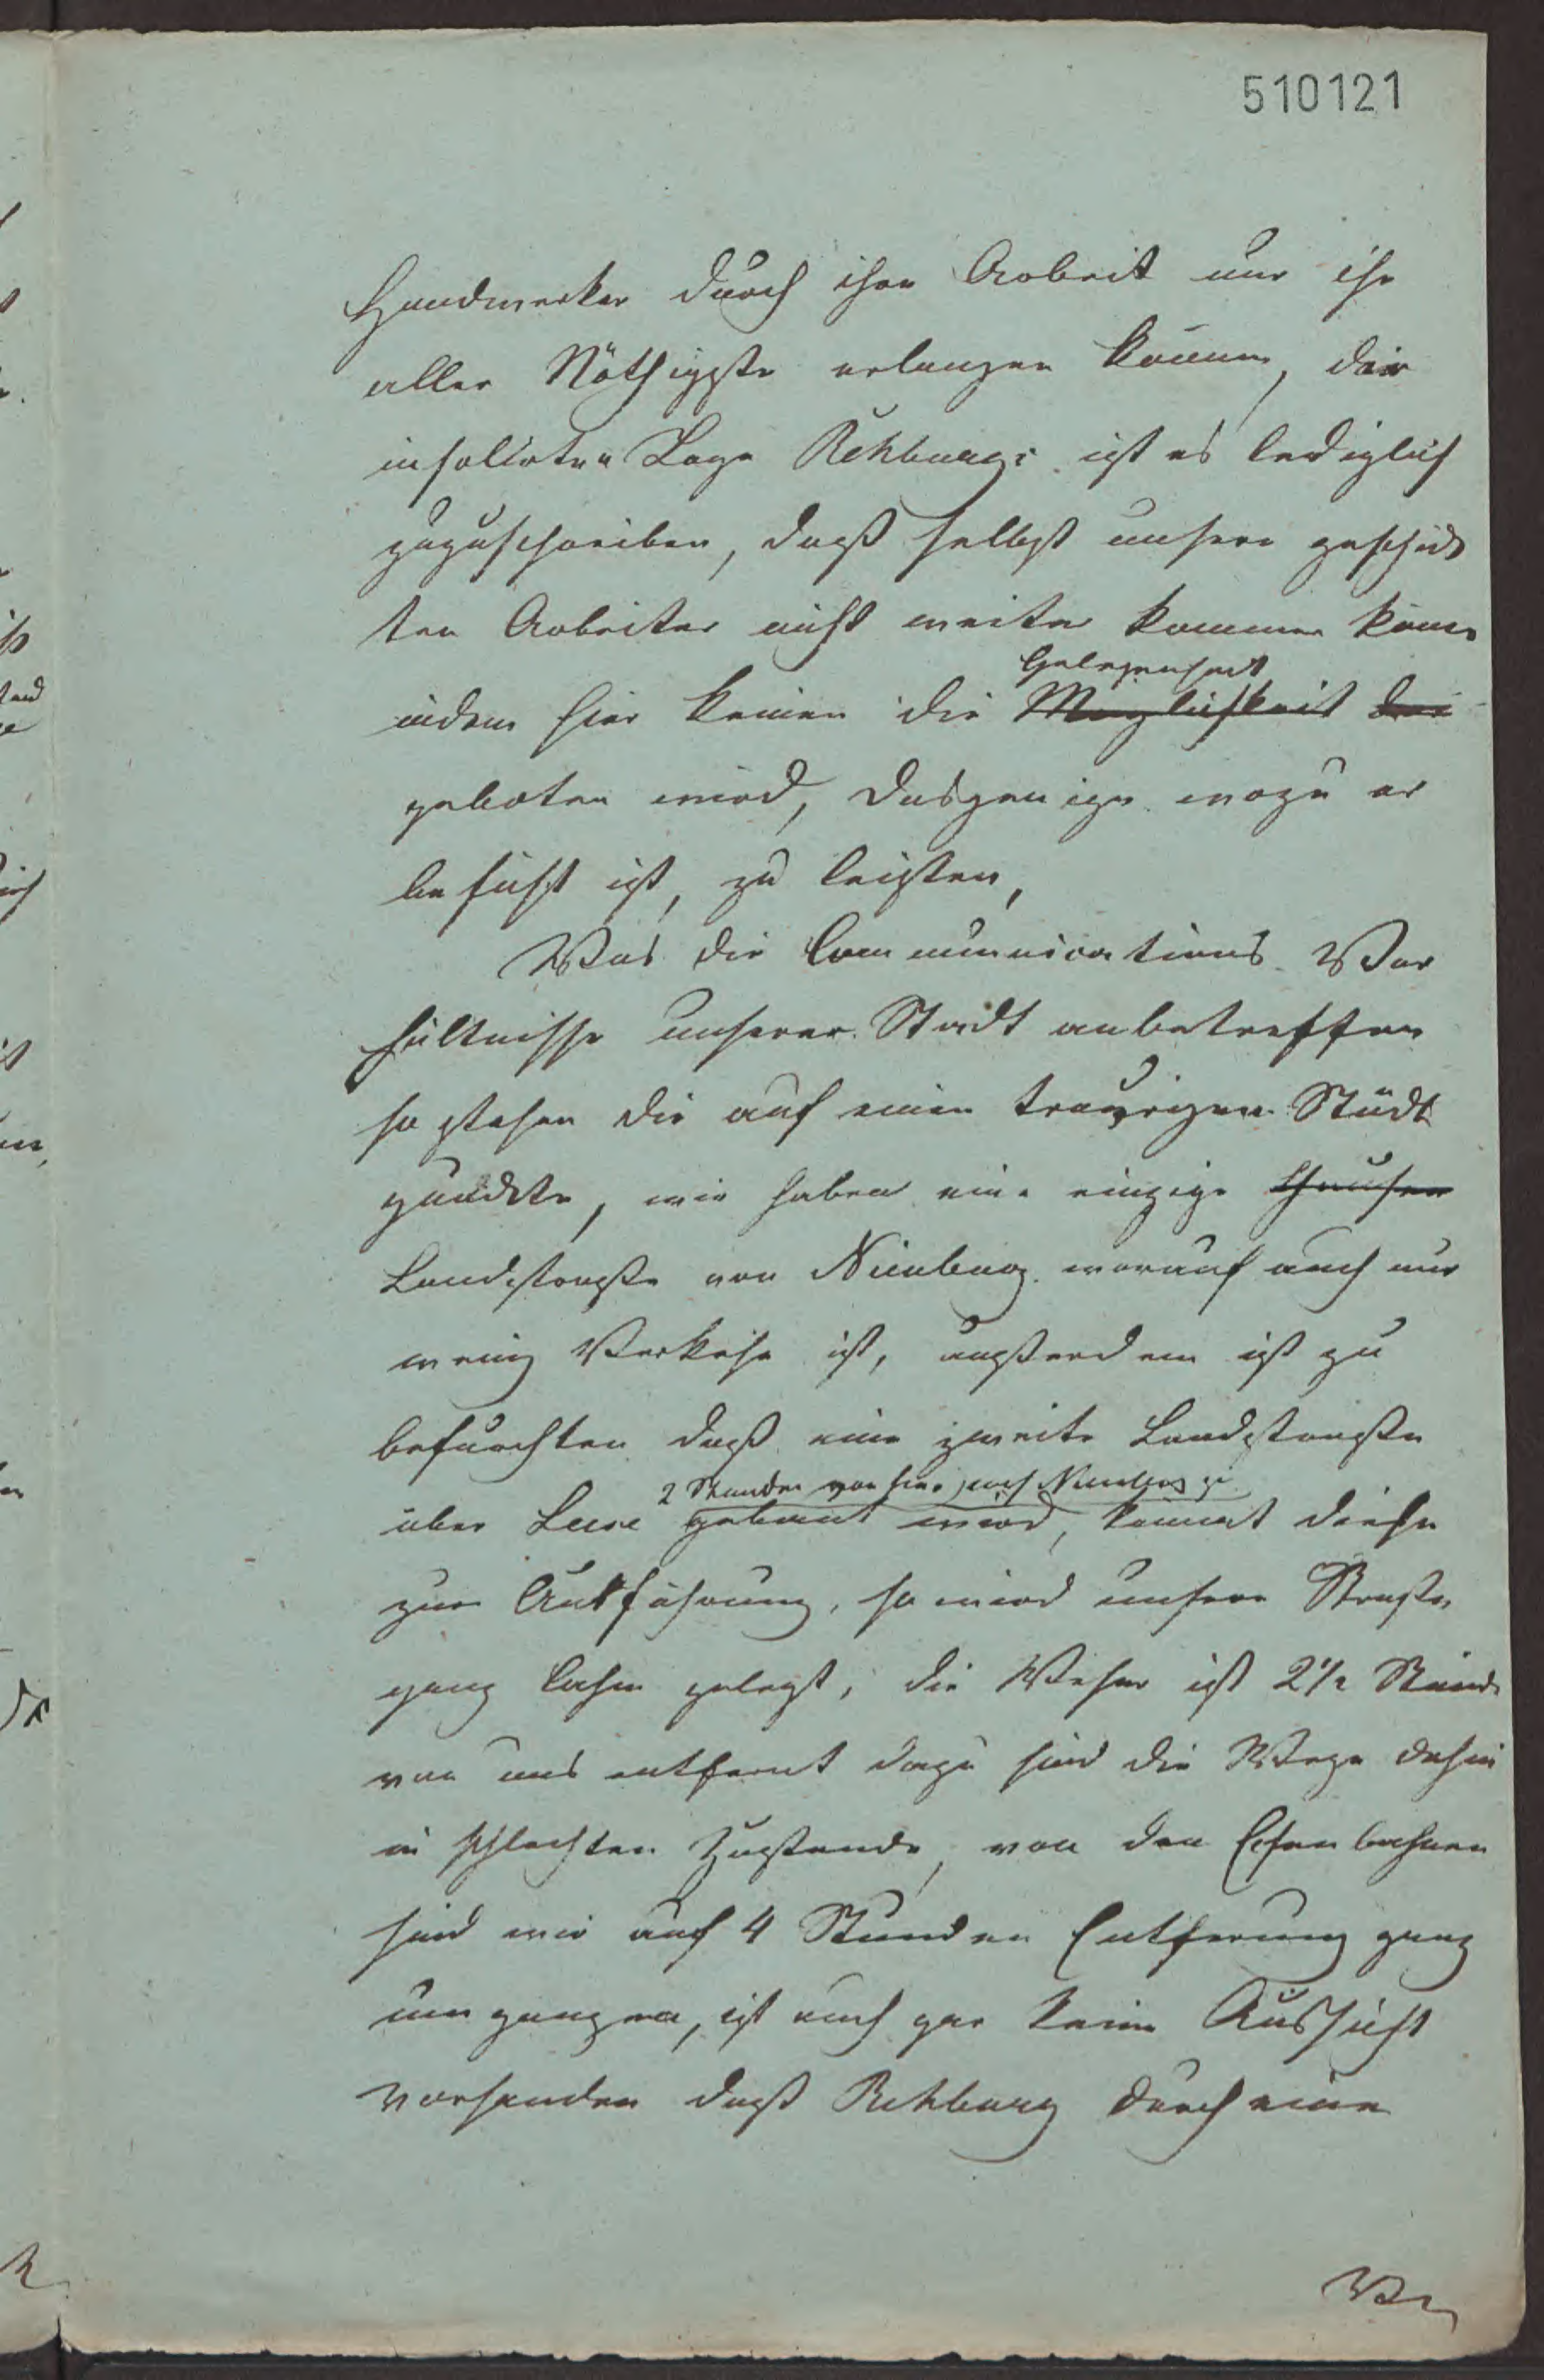 510121
Handwerker durch ihre Arbeit nur ihr
aller Nöthigste erlangen können, der
insolirten Lage Rehburgs ist es lediglich
zuzuschreiben, daß selbst unsere geschick
ten Arbeiter nicht weiter kommen könn
Gelegenheit
indem hier keinen die Möglichkeit
geboten wird, dasgenige wozu er
befähigt ist, zu leisten,
Was die Communications Ver
hältnisse unserer Stadt anbetreffen
so stehen die auf einen traurigen Stadt
punckte, wir haben eine einzige
Landstraße von Nienburg worauf auch nur
wenig Verkehr ist, außerdem ist zu
befürchten daß eine zweite Landstraße
2 Stunden von hier nach Nienburg zu
über Leese gebaut wird, kommt diese
zur Ausführung, so wird unsere Straße
ganz lahm gelegt, die Weser ist 2 1/2 Stunde
von uns entfernt dazu sind die Wege dahin
in schlechten Zustande, von den Eisenbahnen
sind wir auf 4 Stunden Entfernung ganz
umgangen, ist auch gar keine Aussicht
vorhanden daß Rehburg durch eine